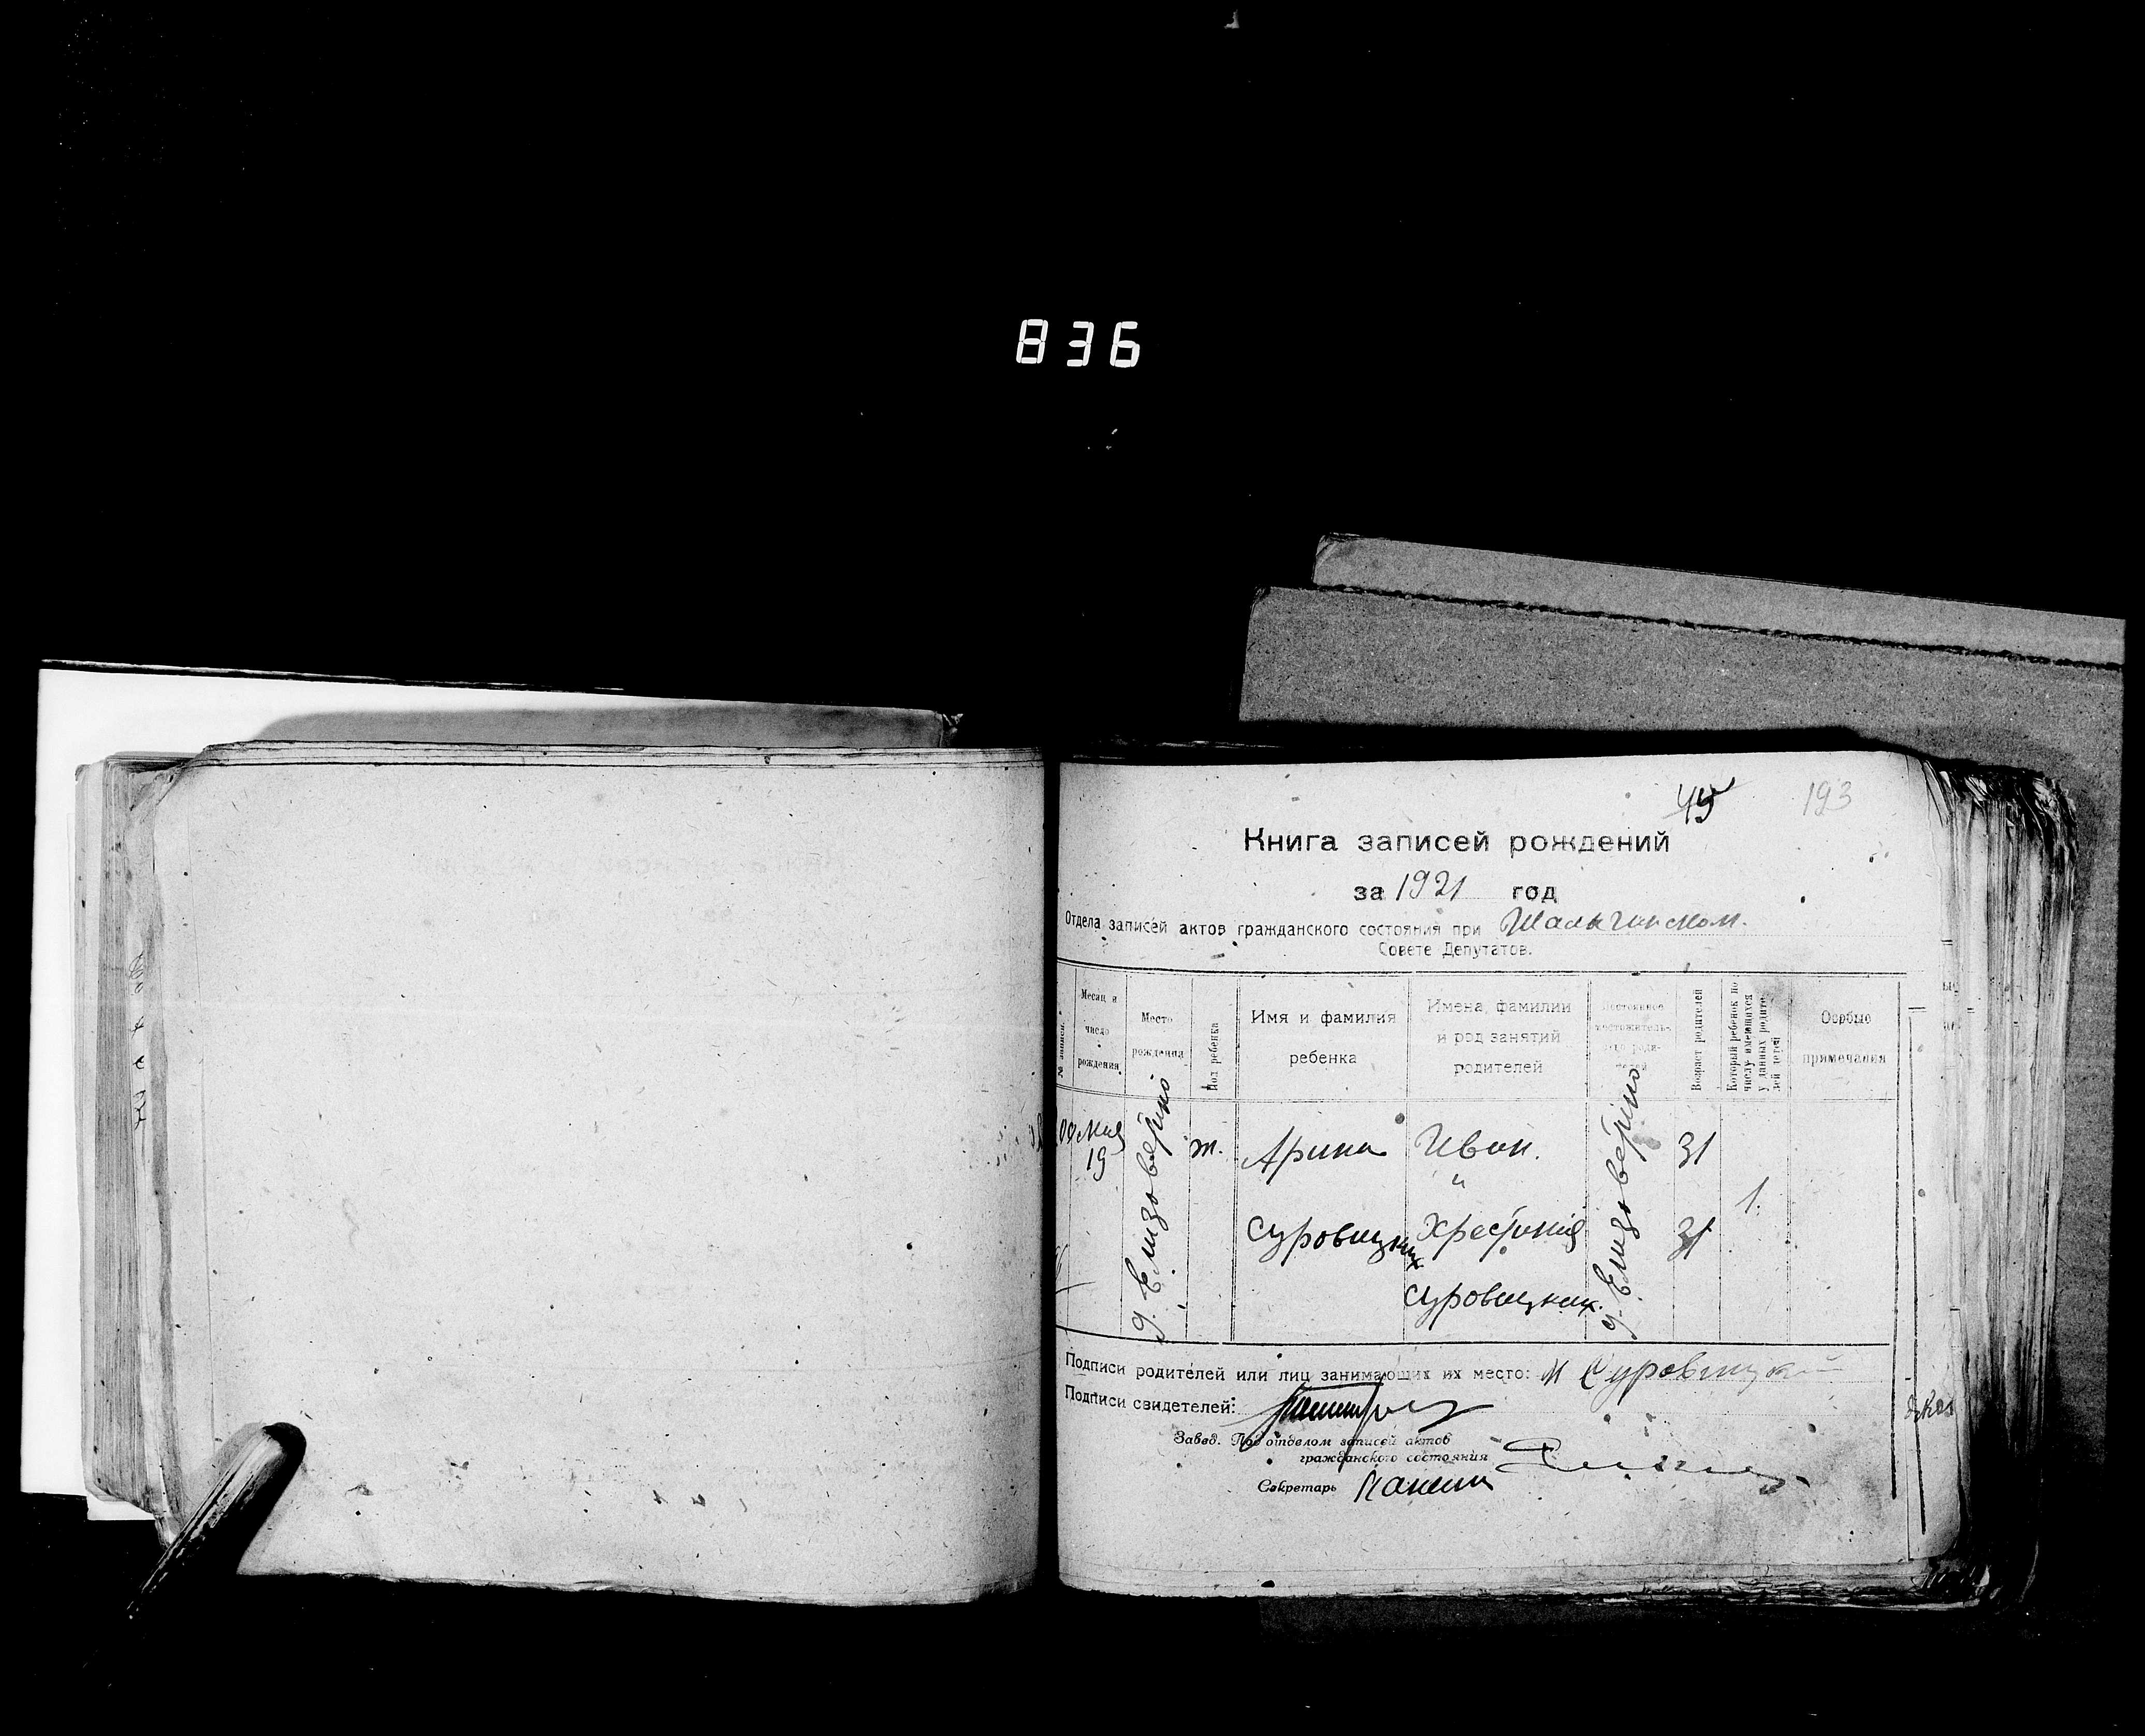 836
45 193
Книга записей рождений
за 1921 год
Отдела записей актов гражданского состояния при Шалыгинском.
Совете Депутатов.
№ записи. Месяц и число рождения Место рождения Пол ребенка Имя и фамилия ребенка Имена, фамилии и род занятий родителей Постоянное местожительство родителей Возраст родителей Который ребенок по числу имеющихся у данных родителей детей Особые примечания
Мая ж. Арина Иван. 31
19 д. Елизоверино " д. Елизоверино 1.
Суровицких Хрестиния 31
Суровицких.
Подписи родителей или лиц занимающих их место: И Суровицкий
Подписи свидетелей:
Завед. Под отделом записей актов
гражданского состояния
Секретарь Панин